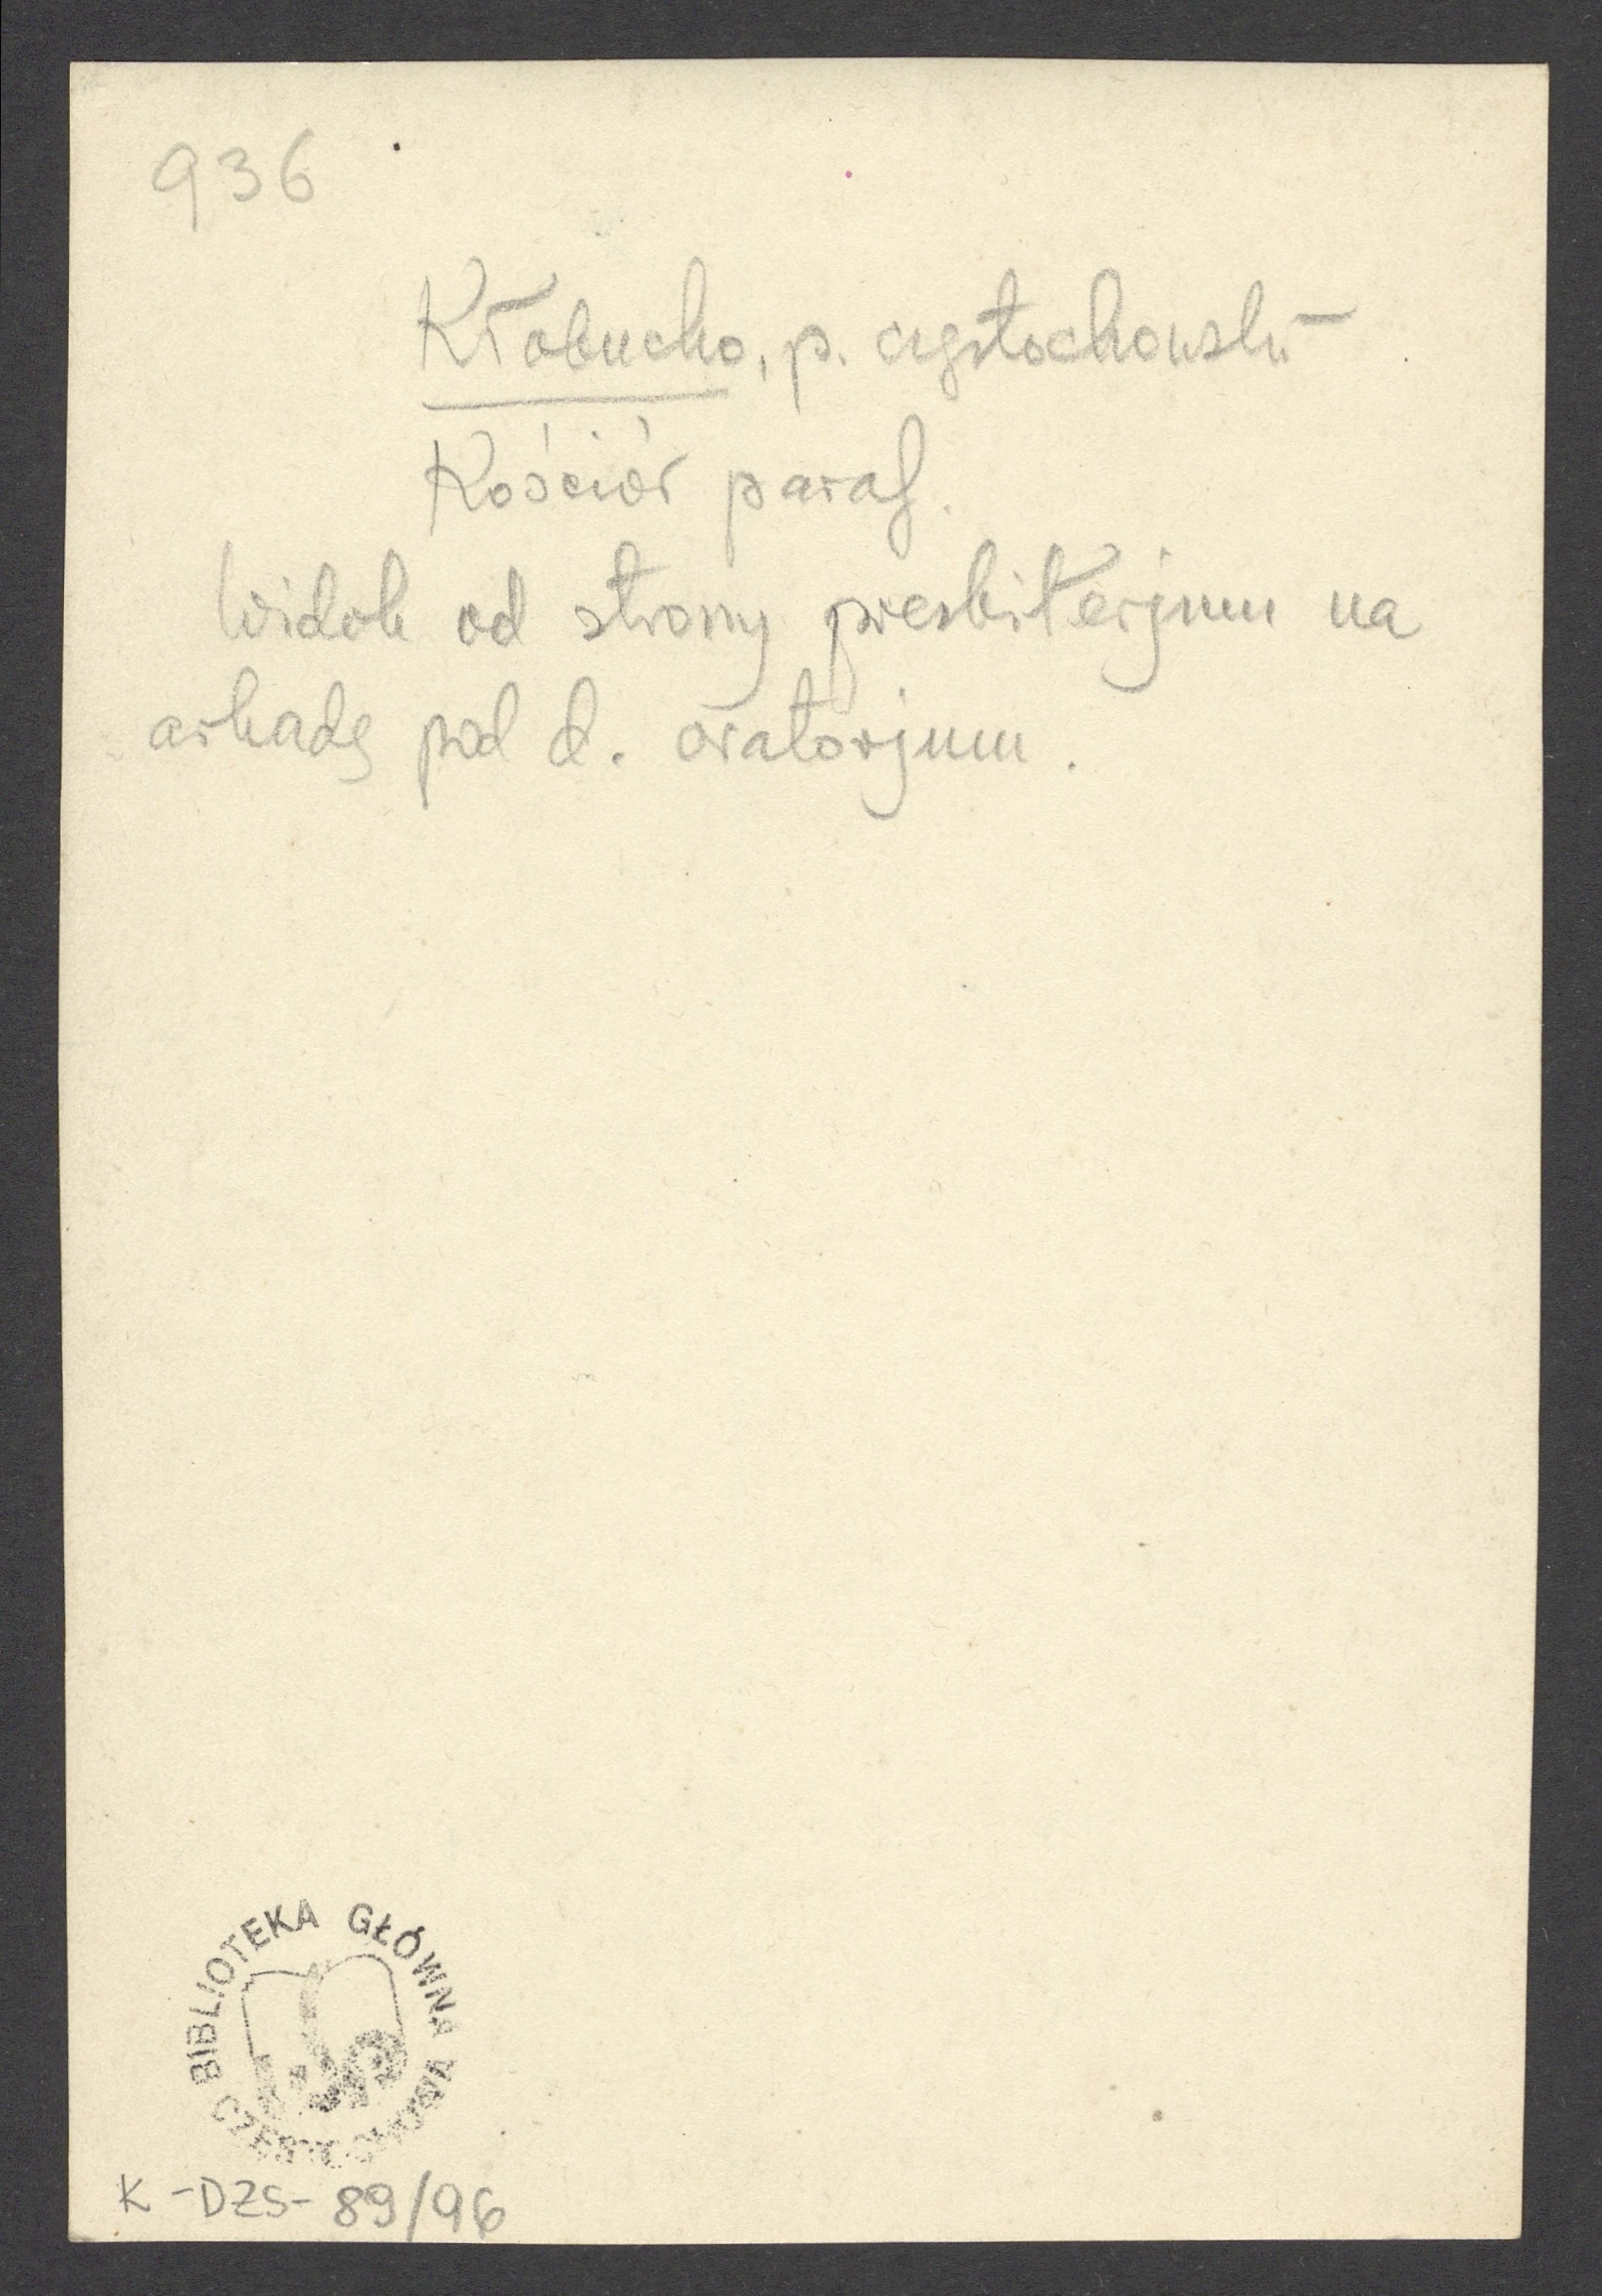 936
Kłobucko, p. częstochowski
Kościół paraf.
Widok od strony presbiterjum na
arkadę pod d. oratorjum.
BIBLIOTEKA GŁÓWNA
CZĘSTOCHOWA
K-DZS-89/96